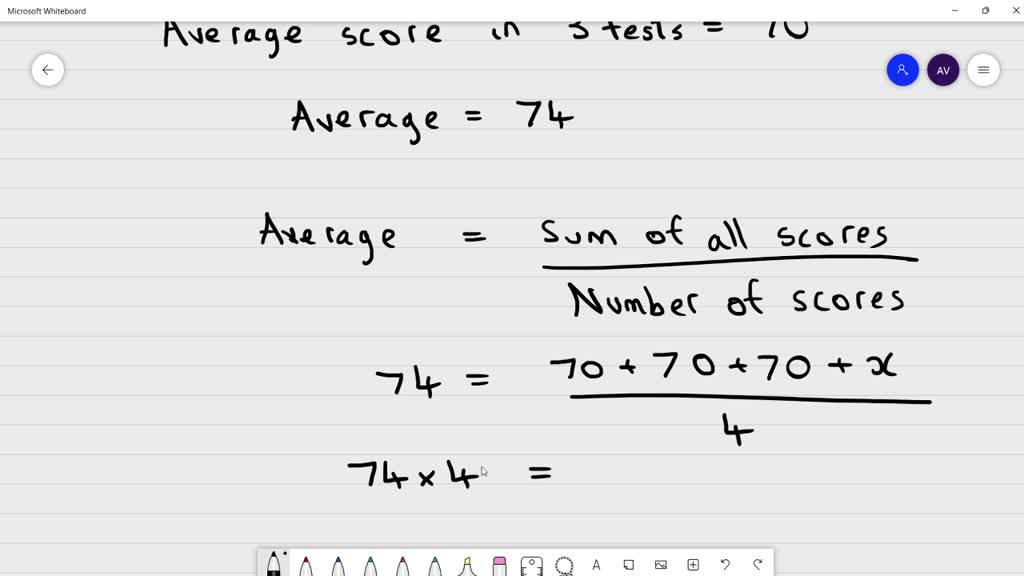 Microsoft Whiteboard
Average score in 3 tests = 70
AV
Average = 74
Average = Sum of all scores
Number of scores
74 = 70 + 70 + 70 + x
4
74 x 4 =
A